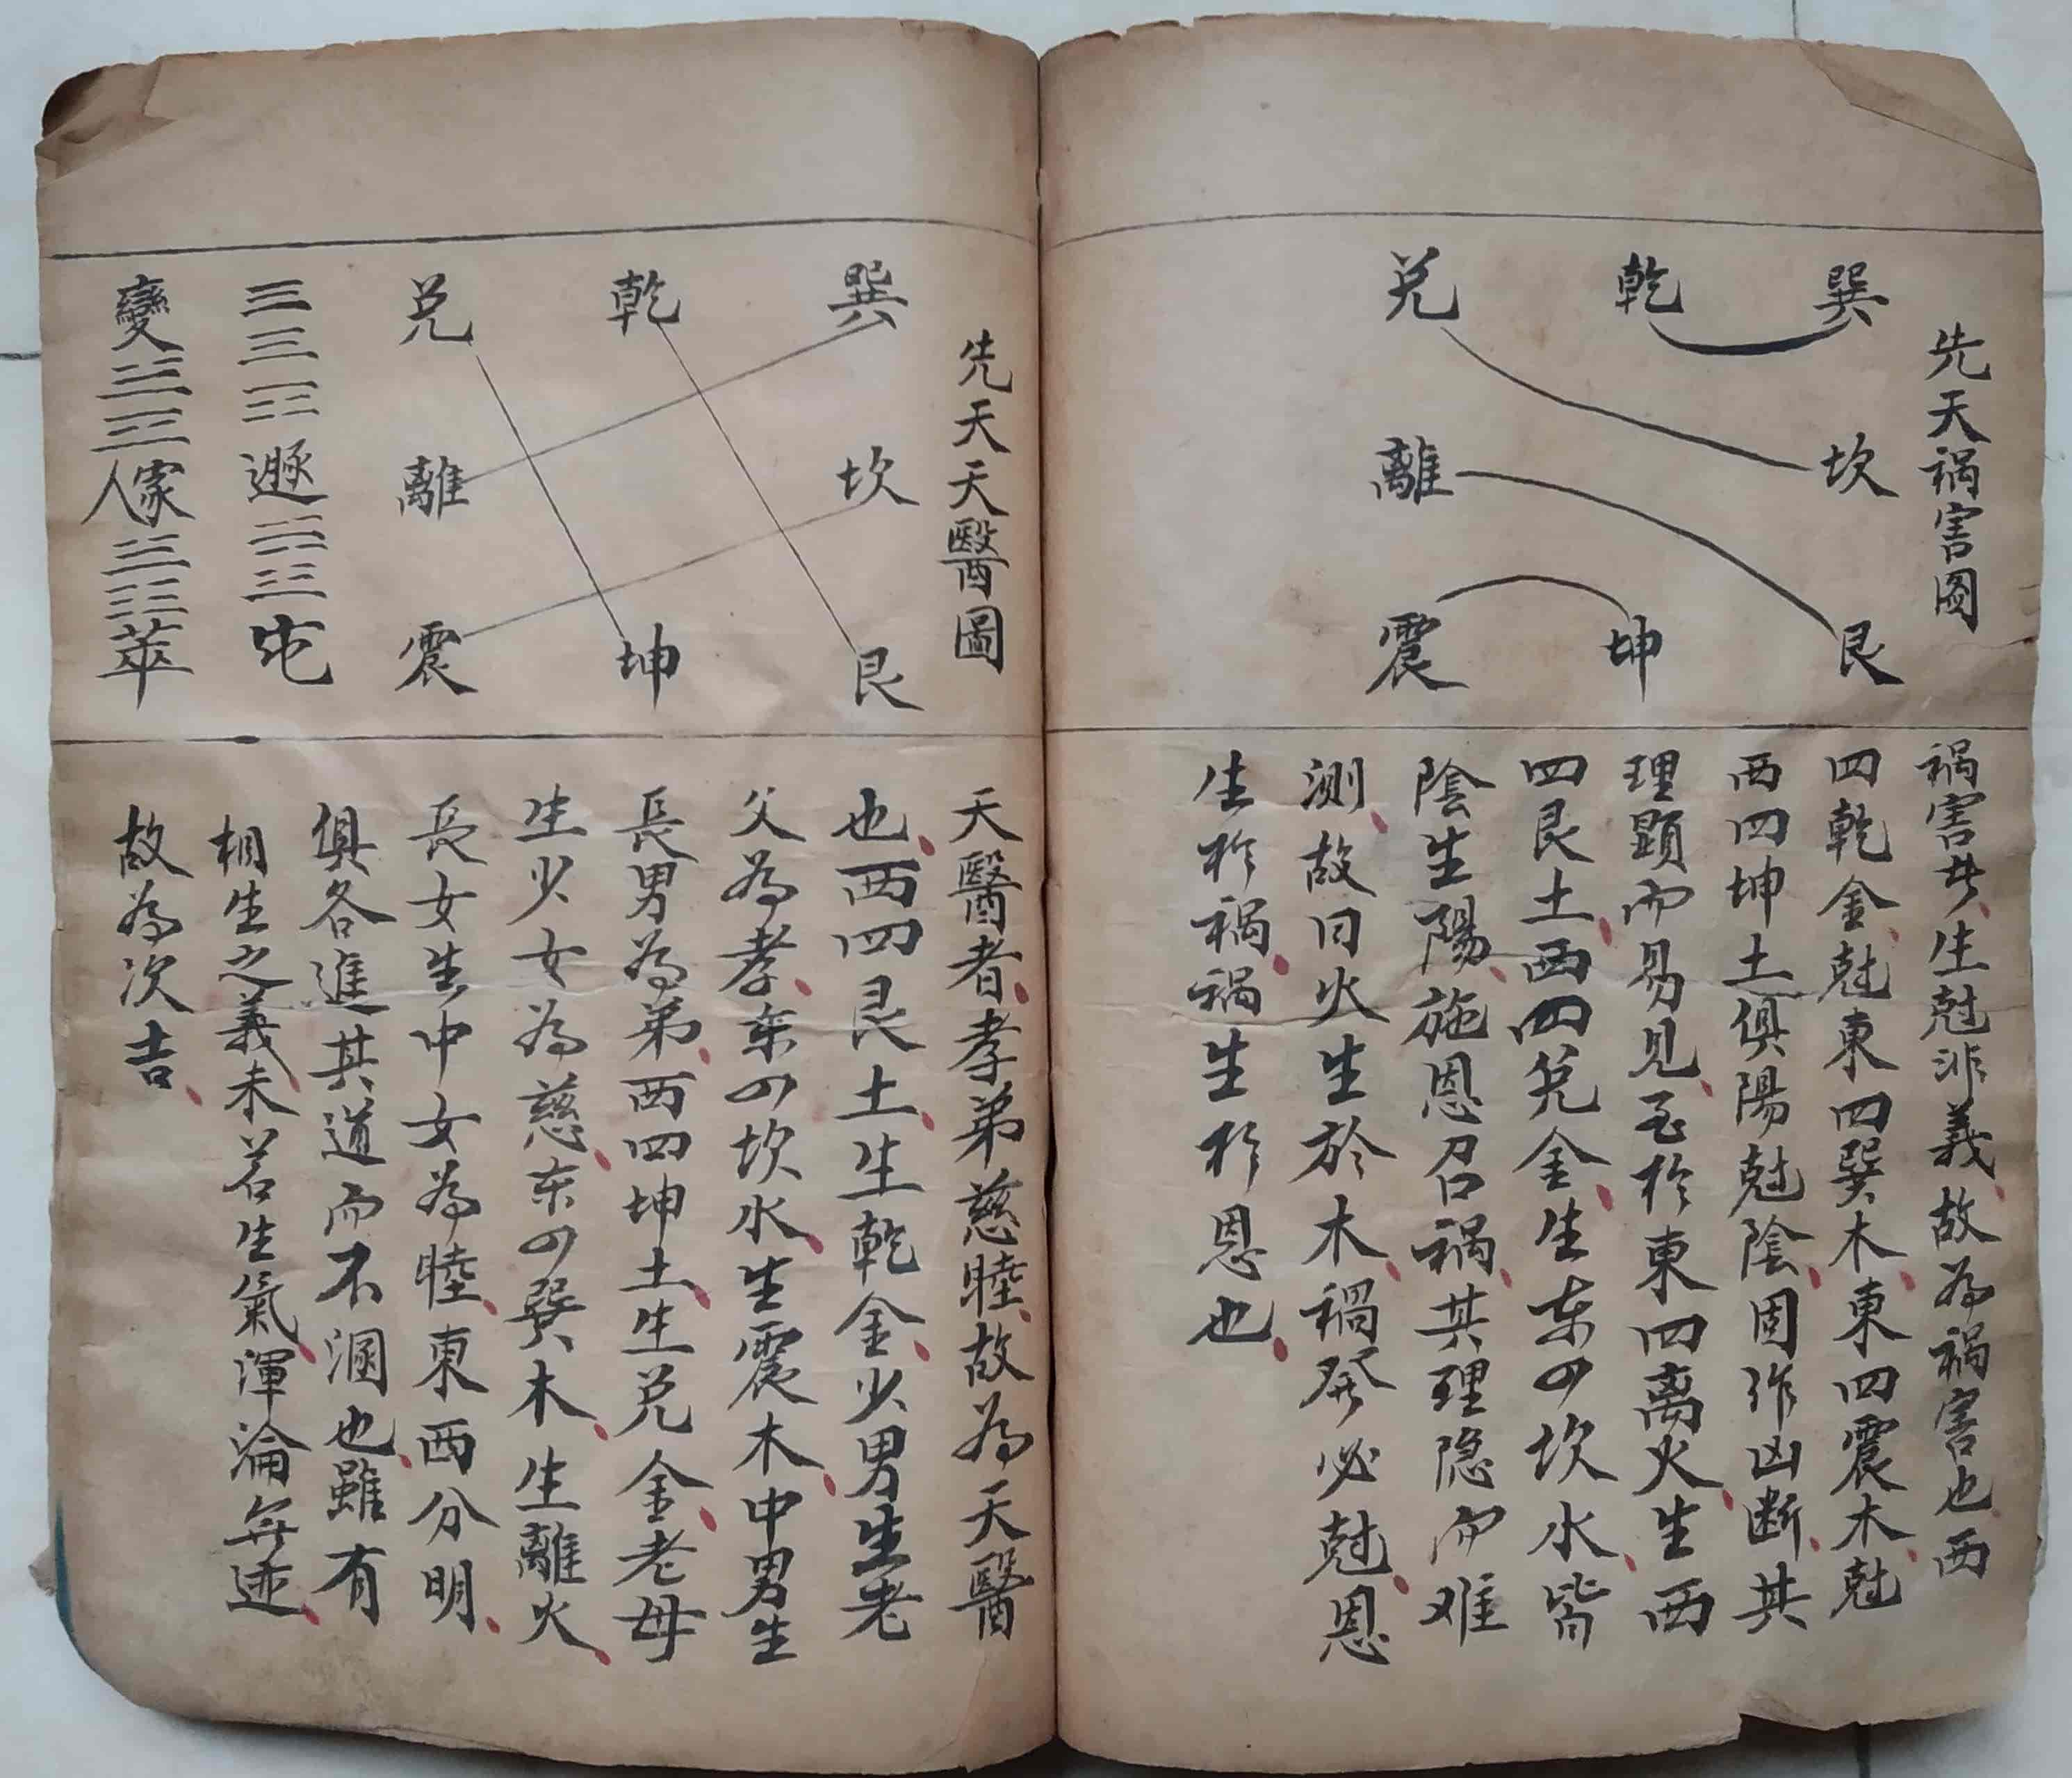 先天禍害图
巽
乾
兑
坎
離
艮
坤
震
禍害者生尅非義故為禍害也西
四乾金尅東四巽木東四震木尅
西四坤土俱陽尅陰固作凶断其
理顕而易見至於東四离火生西
四艮土西四兑金生东四坎水皆
陰生陽施恩召禍其理隐而难
测故曰火生於木禍発必尅恩
生於禍禍生於恩也
先天天醫圖
巽
乾
兑
坎
離
艮
坤
震
遯 屯
變 家人 萃
天醫者孝弟慈睦故為天醫
也西四艮土生乾金少男生老
父為孝东四坎水生震木中男生
長男為弟西四坤土生兑金老母
生少女為慈东四巽木生離火
長女生中女為睦東西分明
俱各進其道而不溷也雖有
相生之義未若生氣渾淪無迹
故為次吉